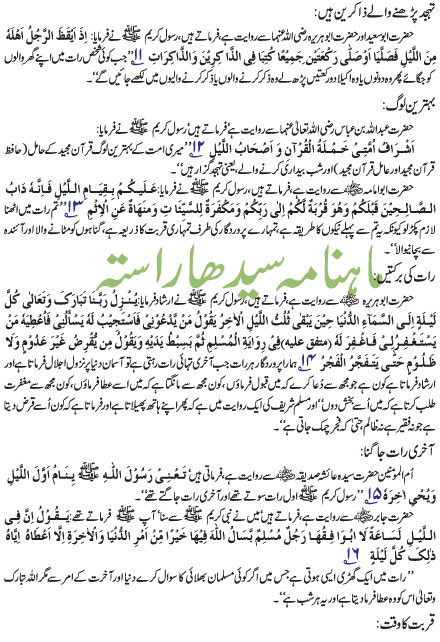 تہجد پڑھنے والے ذاکرین ہیں:
حضرت ابوسعید اور حضرت ابوہریرہ رضی اللہ عنہما سے روایت ہے، فرماتے ہیں، رسول کریم ﷺ نے فرمایا: اِذَا اَیْقَظَ الرَّجُلُ اَهْلَهٗ
مِنَ اللَّیْلِ فَصَلَّیَا اَوْصَلّٰی رَکْعَتَیْنِ جَمِیْعًا کُتِبَا فِی الذَّاکِرِیْنَ وَالذَّاکِرَاتِ ۱۱ ’’جب کوئی شخص رات میں اپنے گھر والوں
کو جگائے پھر وہ دونوں یا وہ اکیلا دو رکعتیں پڑھ لے وہ ذکر کرنے والوں یا ذکر کرنے والیوں میں لکھے جائیں گے‘‘۔
بہترین لوگ:
حضرت عبداللہ بن عباس رضی اللہ تعالیٰ عنہما سے روایت ہے، فرماتے ہیں، رسول کریم ﷺ نے فرمایا:
اَشْرَافُ اُمَّتِیْ حَمَلَةُ الْقُرْآنِ وَ اَصْحَابُ اللَّیْلِ ۱۲ ’’میری امت کے بہترین لوگ قرآن مجید کے حامل (حافظ
قرآن مجید اور عامل قرآن مجید) اور شب بیداری کرنے والے، یعنی تہجد گزار ہیں‘‘۔
حضرت ابوامامہ سے روایت ہے، فرماتے ہیں، رسول کریم ﷺ نے فرمایا: عَلَیْکُمْ بِقِیَامِ اللَّیْلِ فَاِنَّهٗ دَابُ
الصَّالِحِیْنَ قَبْلَکُمْ وَهُوَ قُرْبَةٌ لَّکُمْ اِلٰی رَبِّکُمْ وَمَکْفَرَةٌ لِّلسَّیِّئَاتِ وَمَنْهَاةٌ عَنِ الْاِثْمِ ۱۳ ’’تم رات میں اٹھنا
لازم پکڑلو کیونکہ یہ تم سے پہلے نیکوں کا طریقہ ہے، تمہارے پروردگار کی طرف تمہاری قربت کا ذریعہ ہے، گناہوں کو مٹانے والا اور آئندہ
سے بچانیوالا‘‘۔
ماہنامہ سیدھا راستہ
رات کی برکتیں:
حضرت ابوہریرہ سے روایت ہے، فرماتے ہیں، رسول کریم ﷺ نے ارشاد فرمایا: یَنْزِلُ رَبُّنَا تَبَارَکَ وَتَعَالٰی کُلَّ
لَیْلَةٍ اِلَی السَّمَآءِ الدُّنْیَا حِیْنَ یَبْقٰی ثُلُثُ اللَّیْلِ الْاٰخِرُ یَقُوْلُ مَنْ یَّدْعُوْنِیْ فَاَسْتَجِیْبَ لَهٗ مَنْ یَّسْأَلُنِیْ فَاُعْطِیَهٗ مَنْ
یَّسْتَغْفِرُنِیْ فَاَغْفِرَ لَهٗ (متفق علیه) فِیْ رِوَایَةِ الْمُسْلِمِ ثُمَّ یَبْسُطُ یَدَیْهِ وَیَقُوْلُ مَنْ یُّقْرِضُ غَیْرَ عَدُوْمٍ وَّلَا
ظَلُوْمٍ حَتّٰی یَتَفَجَّرُ الْفَجْرُ ۱۴ ’’ہمارا پروردگار ہر رات جب آخری تہائی رات رہتی ہے تو آسمان دنیا پر نزول اجلال فرماتا ہے اور
ارشاد فرماتا ہے کون ہے جو مجھ سے دعا کرے کہ میں قبول فرماؤں، کون مجھ سے مانگتا ہے کہ میں اسے عطا فرماؤں، کون مجھ سے مغفرت
طلب کرتا ہے کہ میں اُسے بخش دوں‘‘ اور مسلم شریف کی ایک روایت میں ہے کہ پھر اپنے ہاتھ پھیلاتا ہے اور فرماتا ہے کہ کون اُسے قرض دیتا
ہے جو نہ فقیر ہے نہ ظالم حتیٰ کہ فجر چمک جاتی ہے‘‘۔
آخری رات جاگنا:
اُم المومنین حضرت سیدہ عائشہ صدیقہ سے روایت ہے، فرماتی ہیں: تَعْنِیْ رَسُوْلَ اللّٰهِ ﷺ یَنَامُ اَوَّلَ اللَّیْلِ
وَیُحْیِ اٰخِرَهٗ ۱۵ ’’رسول کریم ﷺ اول رات سوتے تھے اور آخری رات جاگتے تھے‘‘۔
حضرت جابر سے روایت ہے، فرماتے ہیں میں نے نبی کریم ﷺ سے سنا آپ ﷺ فرماتے تھے: یَقُوْلُ اِنَّ فِی
اللَّیْلِ لَسَاعَةً لَا یُوَافِقُهَا رَجُلٌ مُّسْلِمٌ یَّسْأَلُ اللّٰهَ فِیْهَا خَیْرًا مِّنْ اَمْرِ الدُّنْیَا وَالْاٰخِرَةِ اِلَّا اَعْطَاهُ اِیَّاهُ وَ
ذٰلِکَ کُلَّ لَیْلَةٍ ۱۶
’’رات میں ایک گھڑی ایسی ہوتی ہے جس میں اگر کوئی مسلمان بھلائی کا سوال کرے دنیا اور آخرت کے امر سے مگر اللہ تبارک
وتعالیٰ اس کو وہ عطا فرما دیتا ہے اور یہ ہر شب ہے‘‘۔
قربت کا وقت: